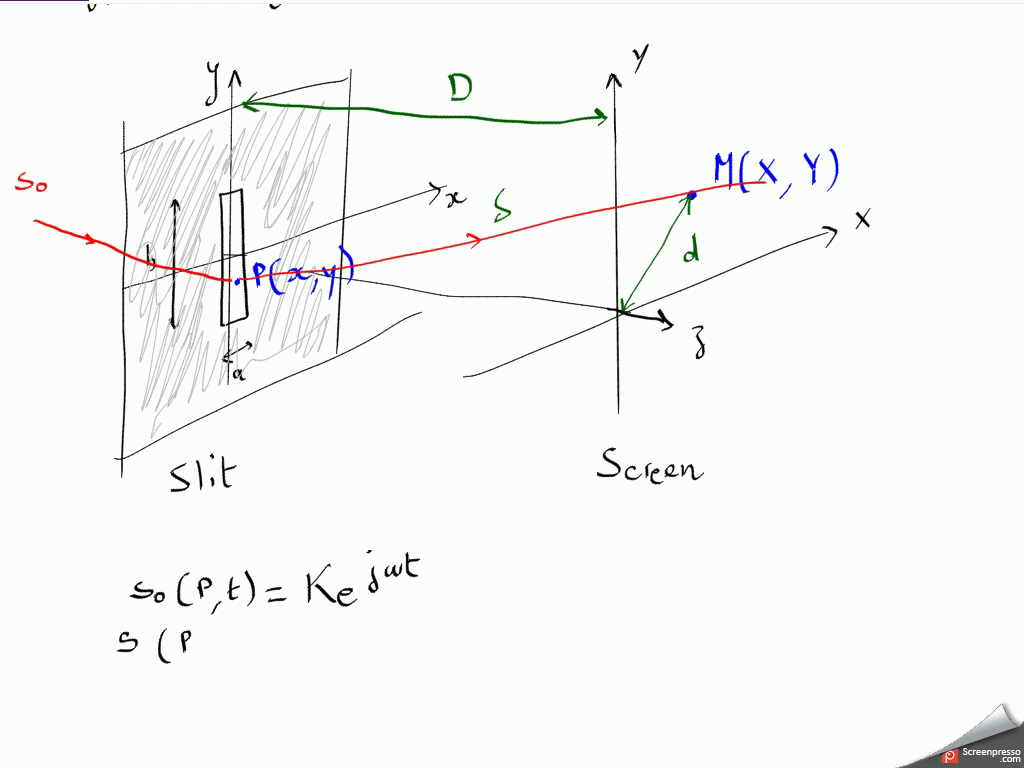 y
D
Y
M(X, Y)
S₀
x
S
X
b
P(x,y)
d
z
a
Slit
Screen
s₀(P,t) = Ke^jωt
s (P
Screenpresso
.com